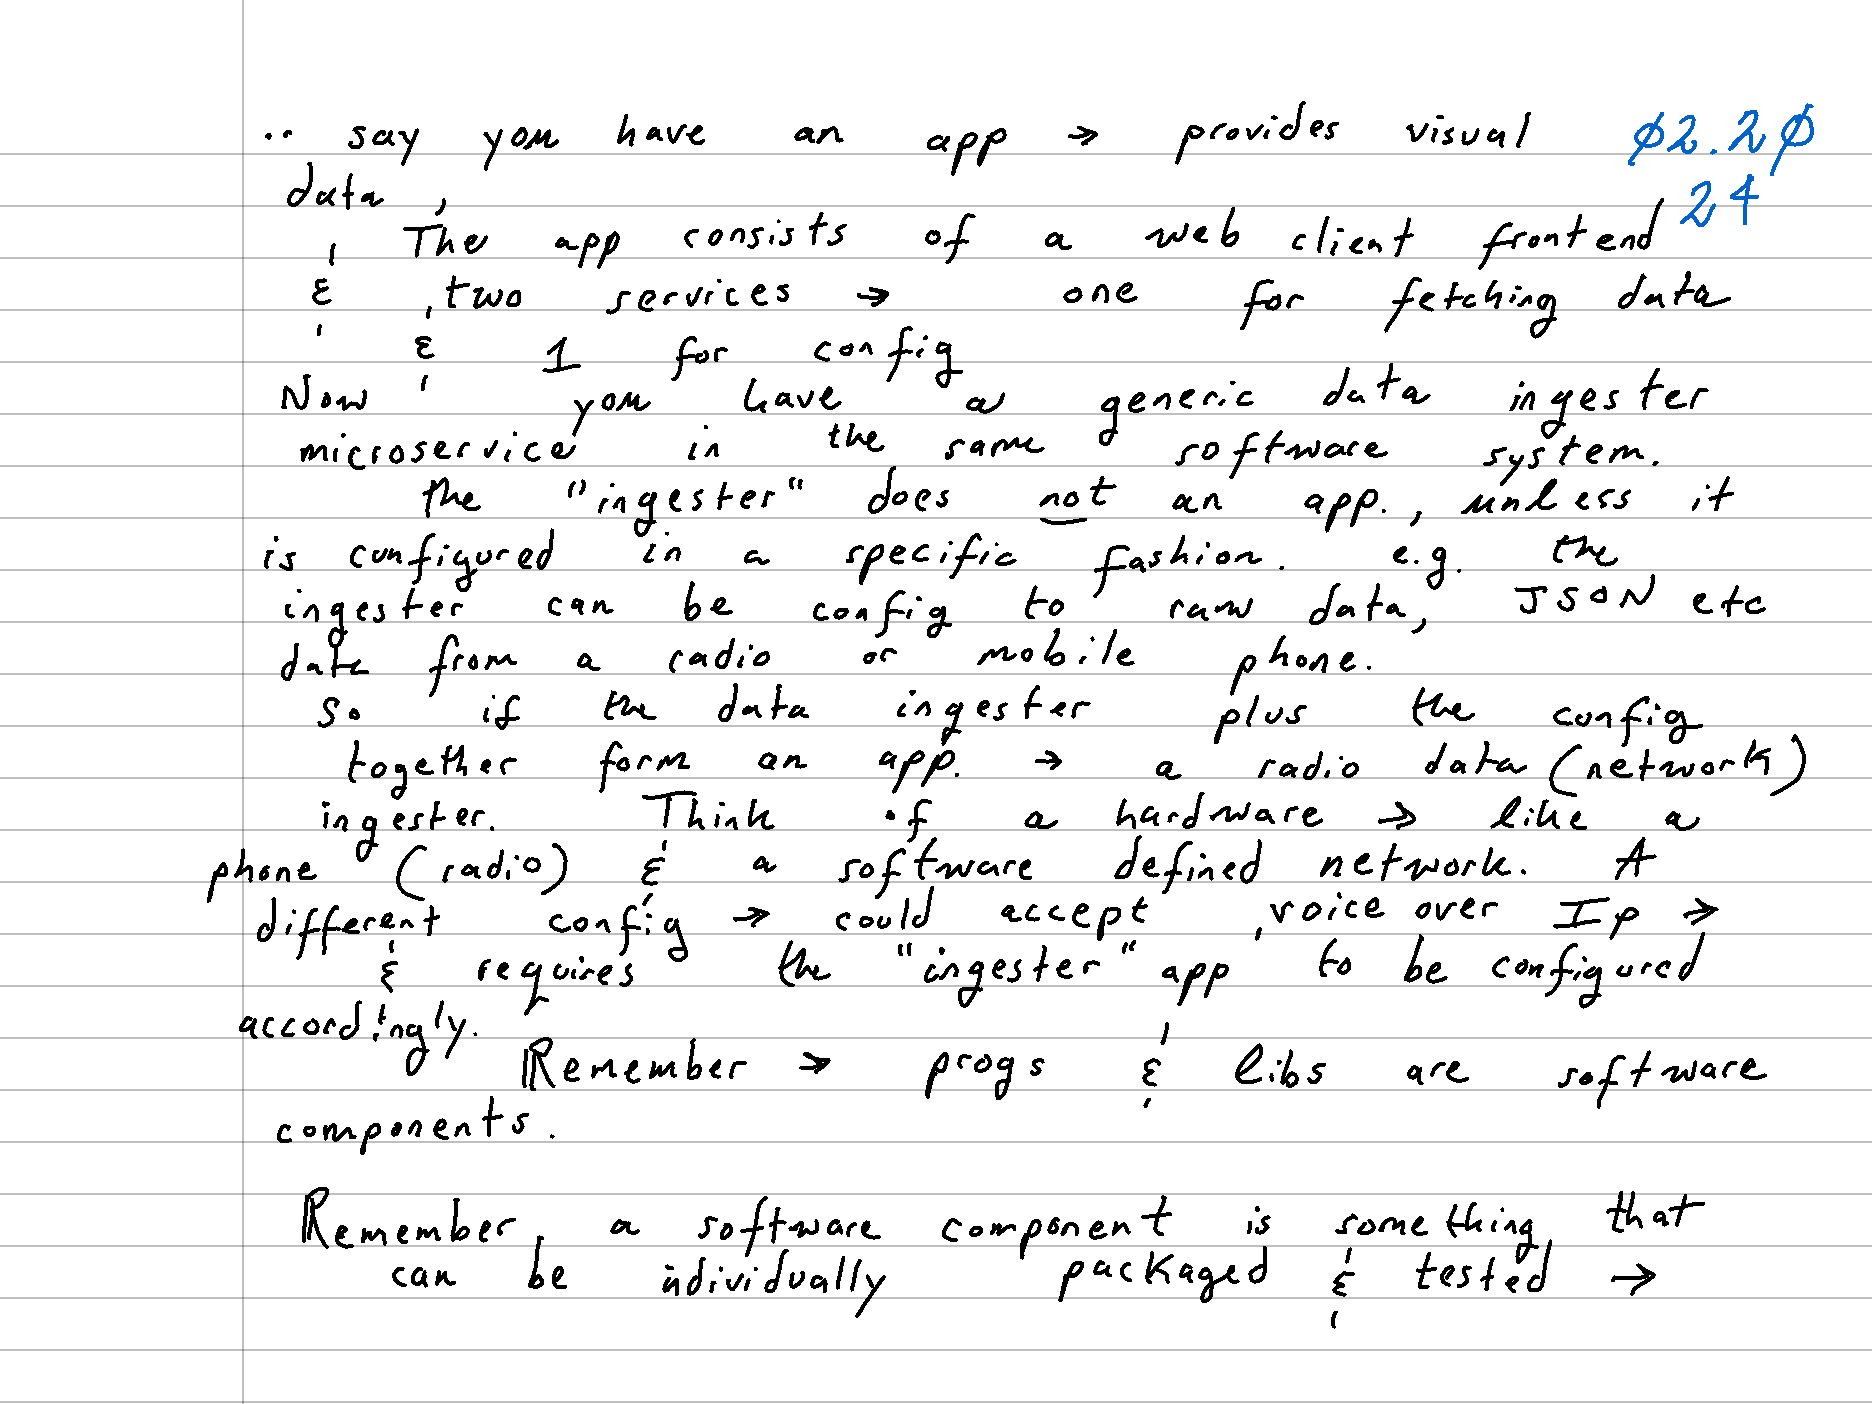 .. say you have an app → provides visual 02.20
data, 24
The app consists of a web client frontend
& two services → one for fetching data
& 1 for config
Now you have a generic data ingester
microservice in the same software system.
the "ingester" does not an app., unless it
is configured in a specific fashion. e.g. the
ingester can be config to raw data, JSON etc
date from a radio or mobile phone.
So if the data ingester plus the config
together form an app. → a radio data (network)
ingester. Think of a hardware → like a
phone (radio) & a software defined network. A
different config → could accept voice over Ip →
& requires the "ingester" app to be configured
accordingly.
Remember → progs & libs are software
components.
Remember, a software component is something that
can be individually packaged & tested →